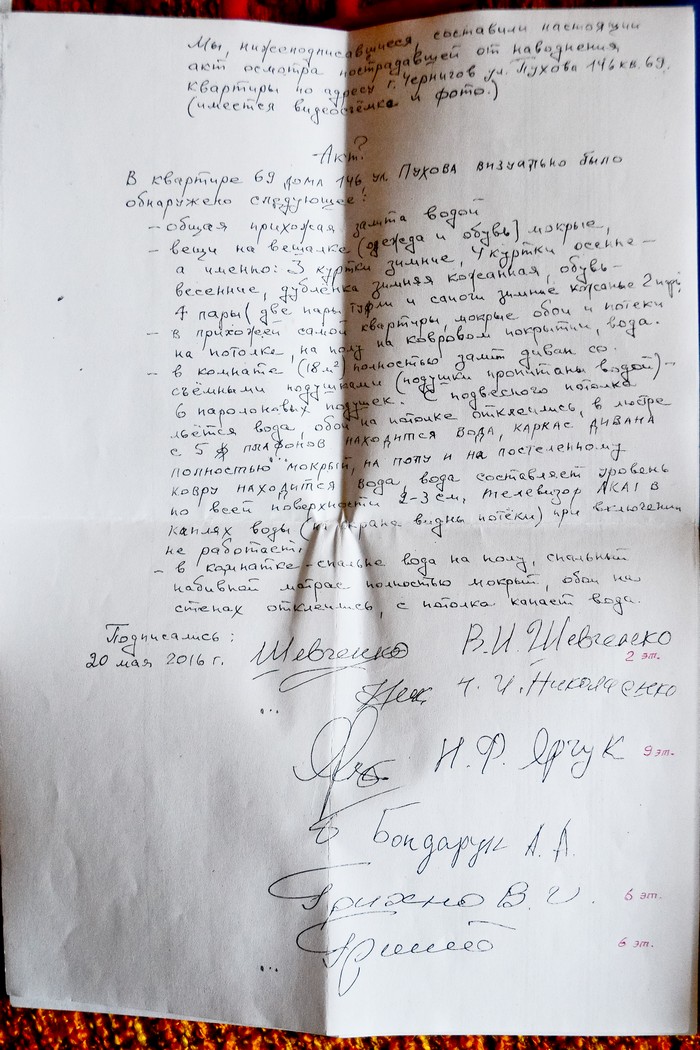 Мы, нижеподписавшиеся, составили настоящий
акт осмотра пострадавшей от наводнения
квартиры по адресу г. Чернигов ул. Пухова 146 кв. 69.
(имеется видеосъёмка и фото.)
Акт?
В квартире 69 дома 146 ул. Пухова визуально было
обнаружено следующее:
- общая прихожая залита водой
- вещи на вешалке (одежда и обувь) мокрые,
а именно: 3 куртки зимние, 4 куртки осенне-
весенние, дублёнка зимняя кожанная, обувь-
4 пары (две пары туфли и сапоги зимние кожаные 2 пары;
- в прихожей самой квартиры, мокрые обои и потеки
на потолке, на полу на ковровом покрытии, вода.
- в комнате (18 м²) полностью залит диван со
съёмными подушками (подушки пропитаны водой) -
6 паролоновых подушек. С подвесного потолка
льётся вода, обои на потолке отклеились, в люстре
с 5 плафонов находится вода, каркас дивана
полностью мокрый, на полу и на постеленному
ковру находится вода, вода составляет уровень
по всей поверхности 2-3 см, телевизор AKAI в
каплях воды (на экрана видны потёки) при включении
не работает.
- в комнатке-спальне вода на полу, спальный
набивной матрас полностью мокрый, обои на
стенах отклеились, с потолка капает вода.
Подписались:
20 мая 2016 г. Шевченко В.И. Шевченко
2 эт.
Ник Н. И. Николаенко
...
Н. Ф. Ярчук 9 эт.
Бондарук А. А.
Грихно В. И. 6 эт.
6 эт.
...